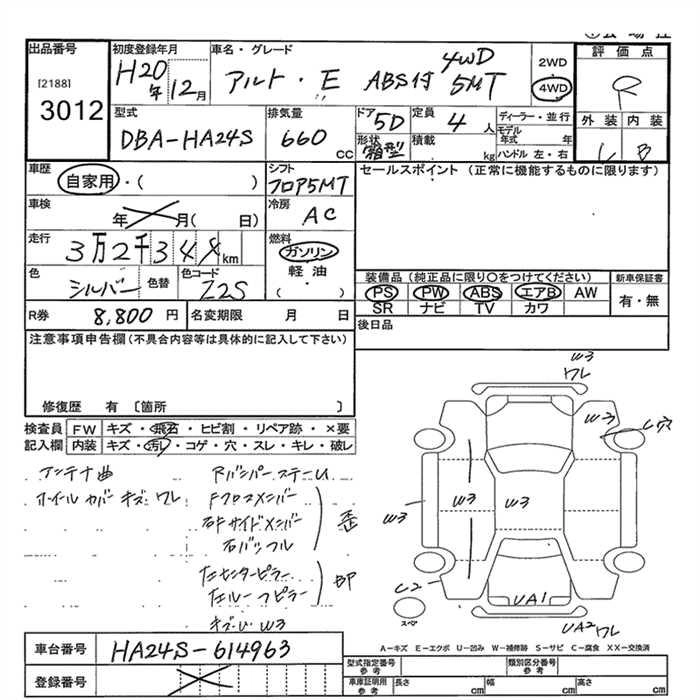 出品番号
[2188]
3012
初度登録年月
H20年 12月
車名・グレード
アルト・E ABS付 4WD 5MT
2WD
4WD
評 価 点
R
外 装 内 装
B
型式
DBA-HA24S
排気量
660 CC
ドア 5D
形状 箱型
定員 4 人
積載 kg
ディーラー・並 行
モデル年式 年
ハンドル 左・右
車歴
自家用・( )
シフト
フロア5MT
セールスポイント (正常に機能するものに限ります)
車検
年 月( 日)
冷房
AC
走行
3万2千34 km
燃料
ガソリン
軽 油
( )
色
シルバー
色替
色コード
Z2S
装備品 (純正品に限り○をつけてください)
新車保証書
PS PW ABS エアB AW
SR ナビ TV カワ
有・無
R券 8,800 円
名変期限 月 日
後日品
注意事項申告欄(不具合内容等は具体的に記入して下さい)
修復歴 有 〔箇所 〕
検査員 FW キズ・飛石・ヒビ割・リペア跡・×要
記入欄 内装 キズ・汚れ・コゲ・穴・スレ・キレ・破レ
アンテナ曲
ホイルカバーキズ ワレ
Fクロスメンバー
右F サイドメンバー
左センターピラー
左ルーフピラー
W3
W3
ワレ
W3
C穴
W3
W3
W3
C2
UA1
UA2 ワレ
スペア
A－キズ E－エクボ U－凹み W－補修跡 S－サビ C－腐食 XX－交換済
車台番号 HA24S-614963
登録番号
型式指定番号 参考
類別区分番号 参考
車庫証明用 参考
長さ cm
幅 cm
高さ cm